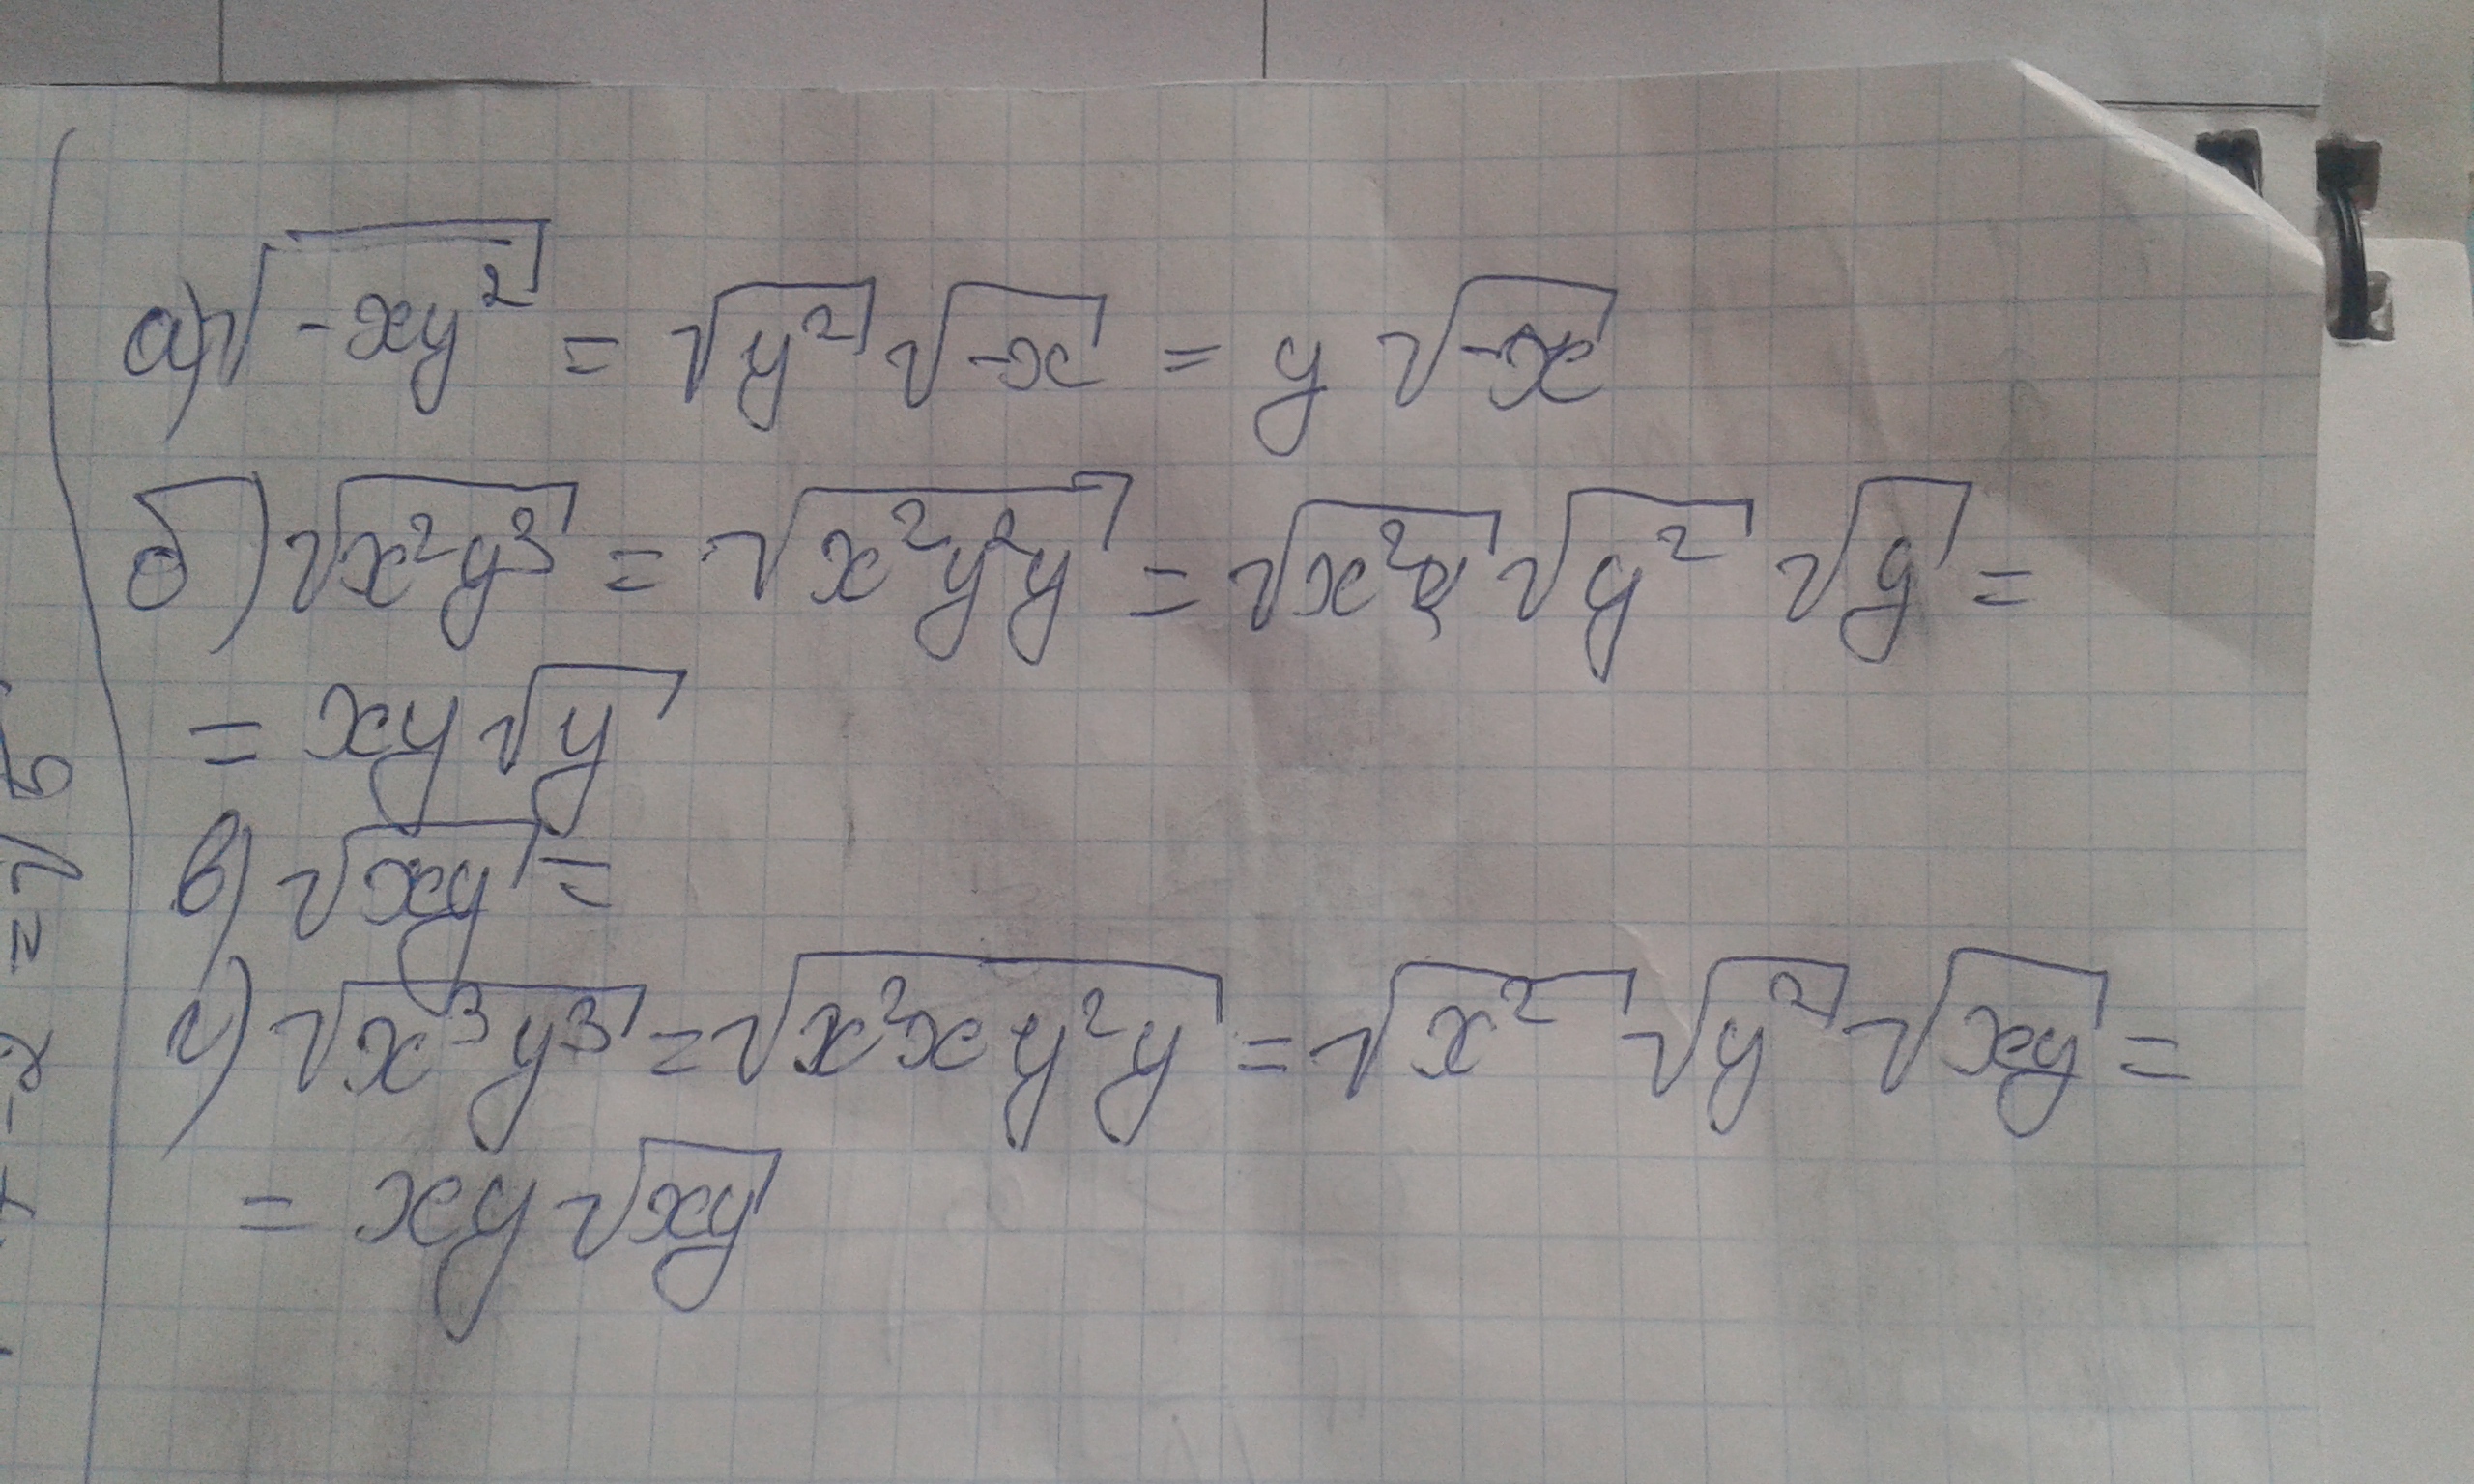 а) √-xy² = √y² √-x = y √-x
б) √x²y³ = √x²y²y = √x² √y² √y =
= xy √y
в) √xy =
г) √x³y³ = √x²xy²y = √x² √y² √xy =
= xy √xy